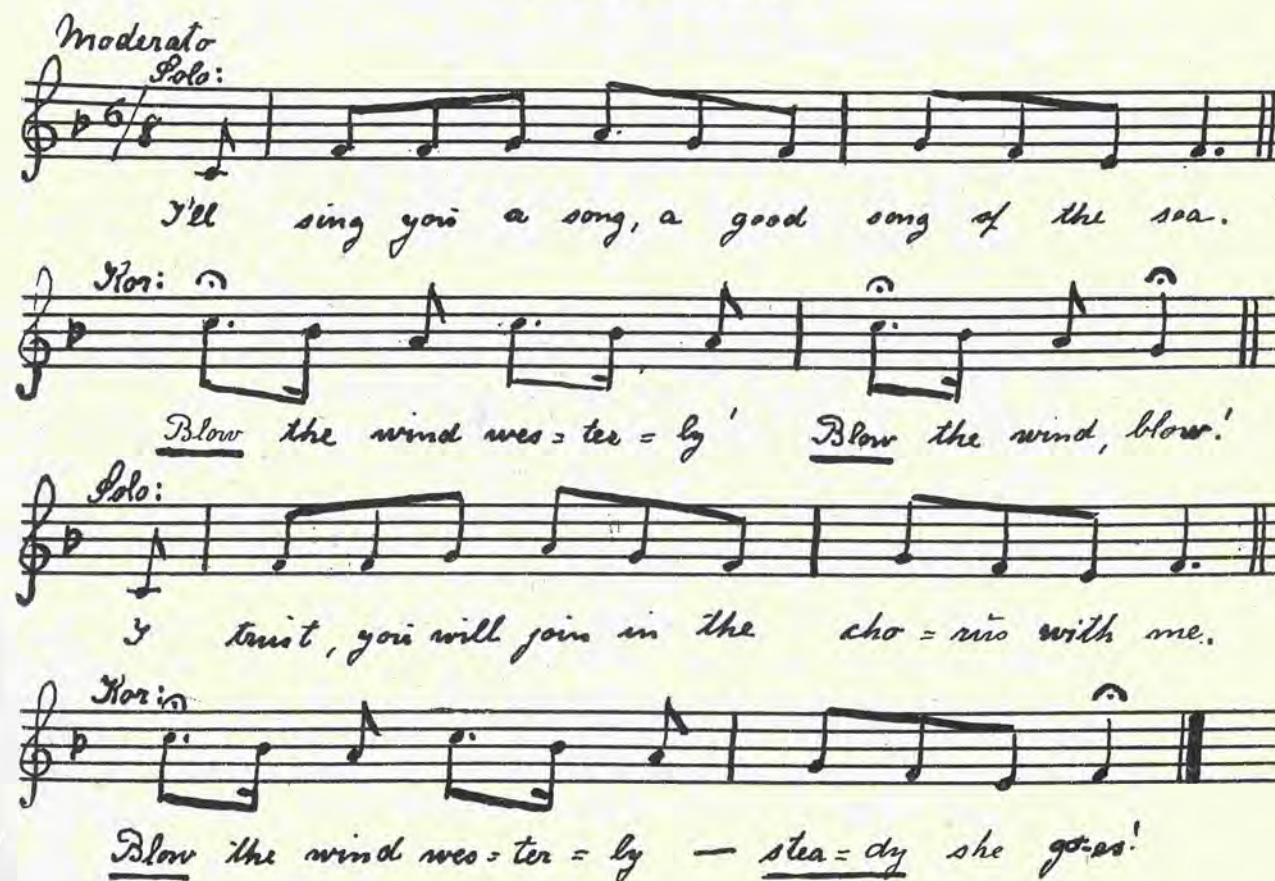 Moderato
Solo:
6/8
I'll sing you a song, a good song of the sea.
Kor:
Blow the wind wes=ter=ly' Blow the wind, blow!
Solo:
I trust, you will join in the cho=rus with me.
Kor:
Blow the wind wes=ter=ly — stea=dy she go=es!